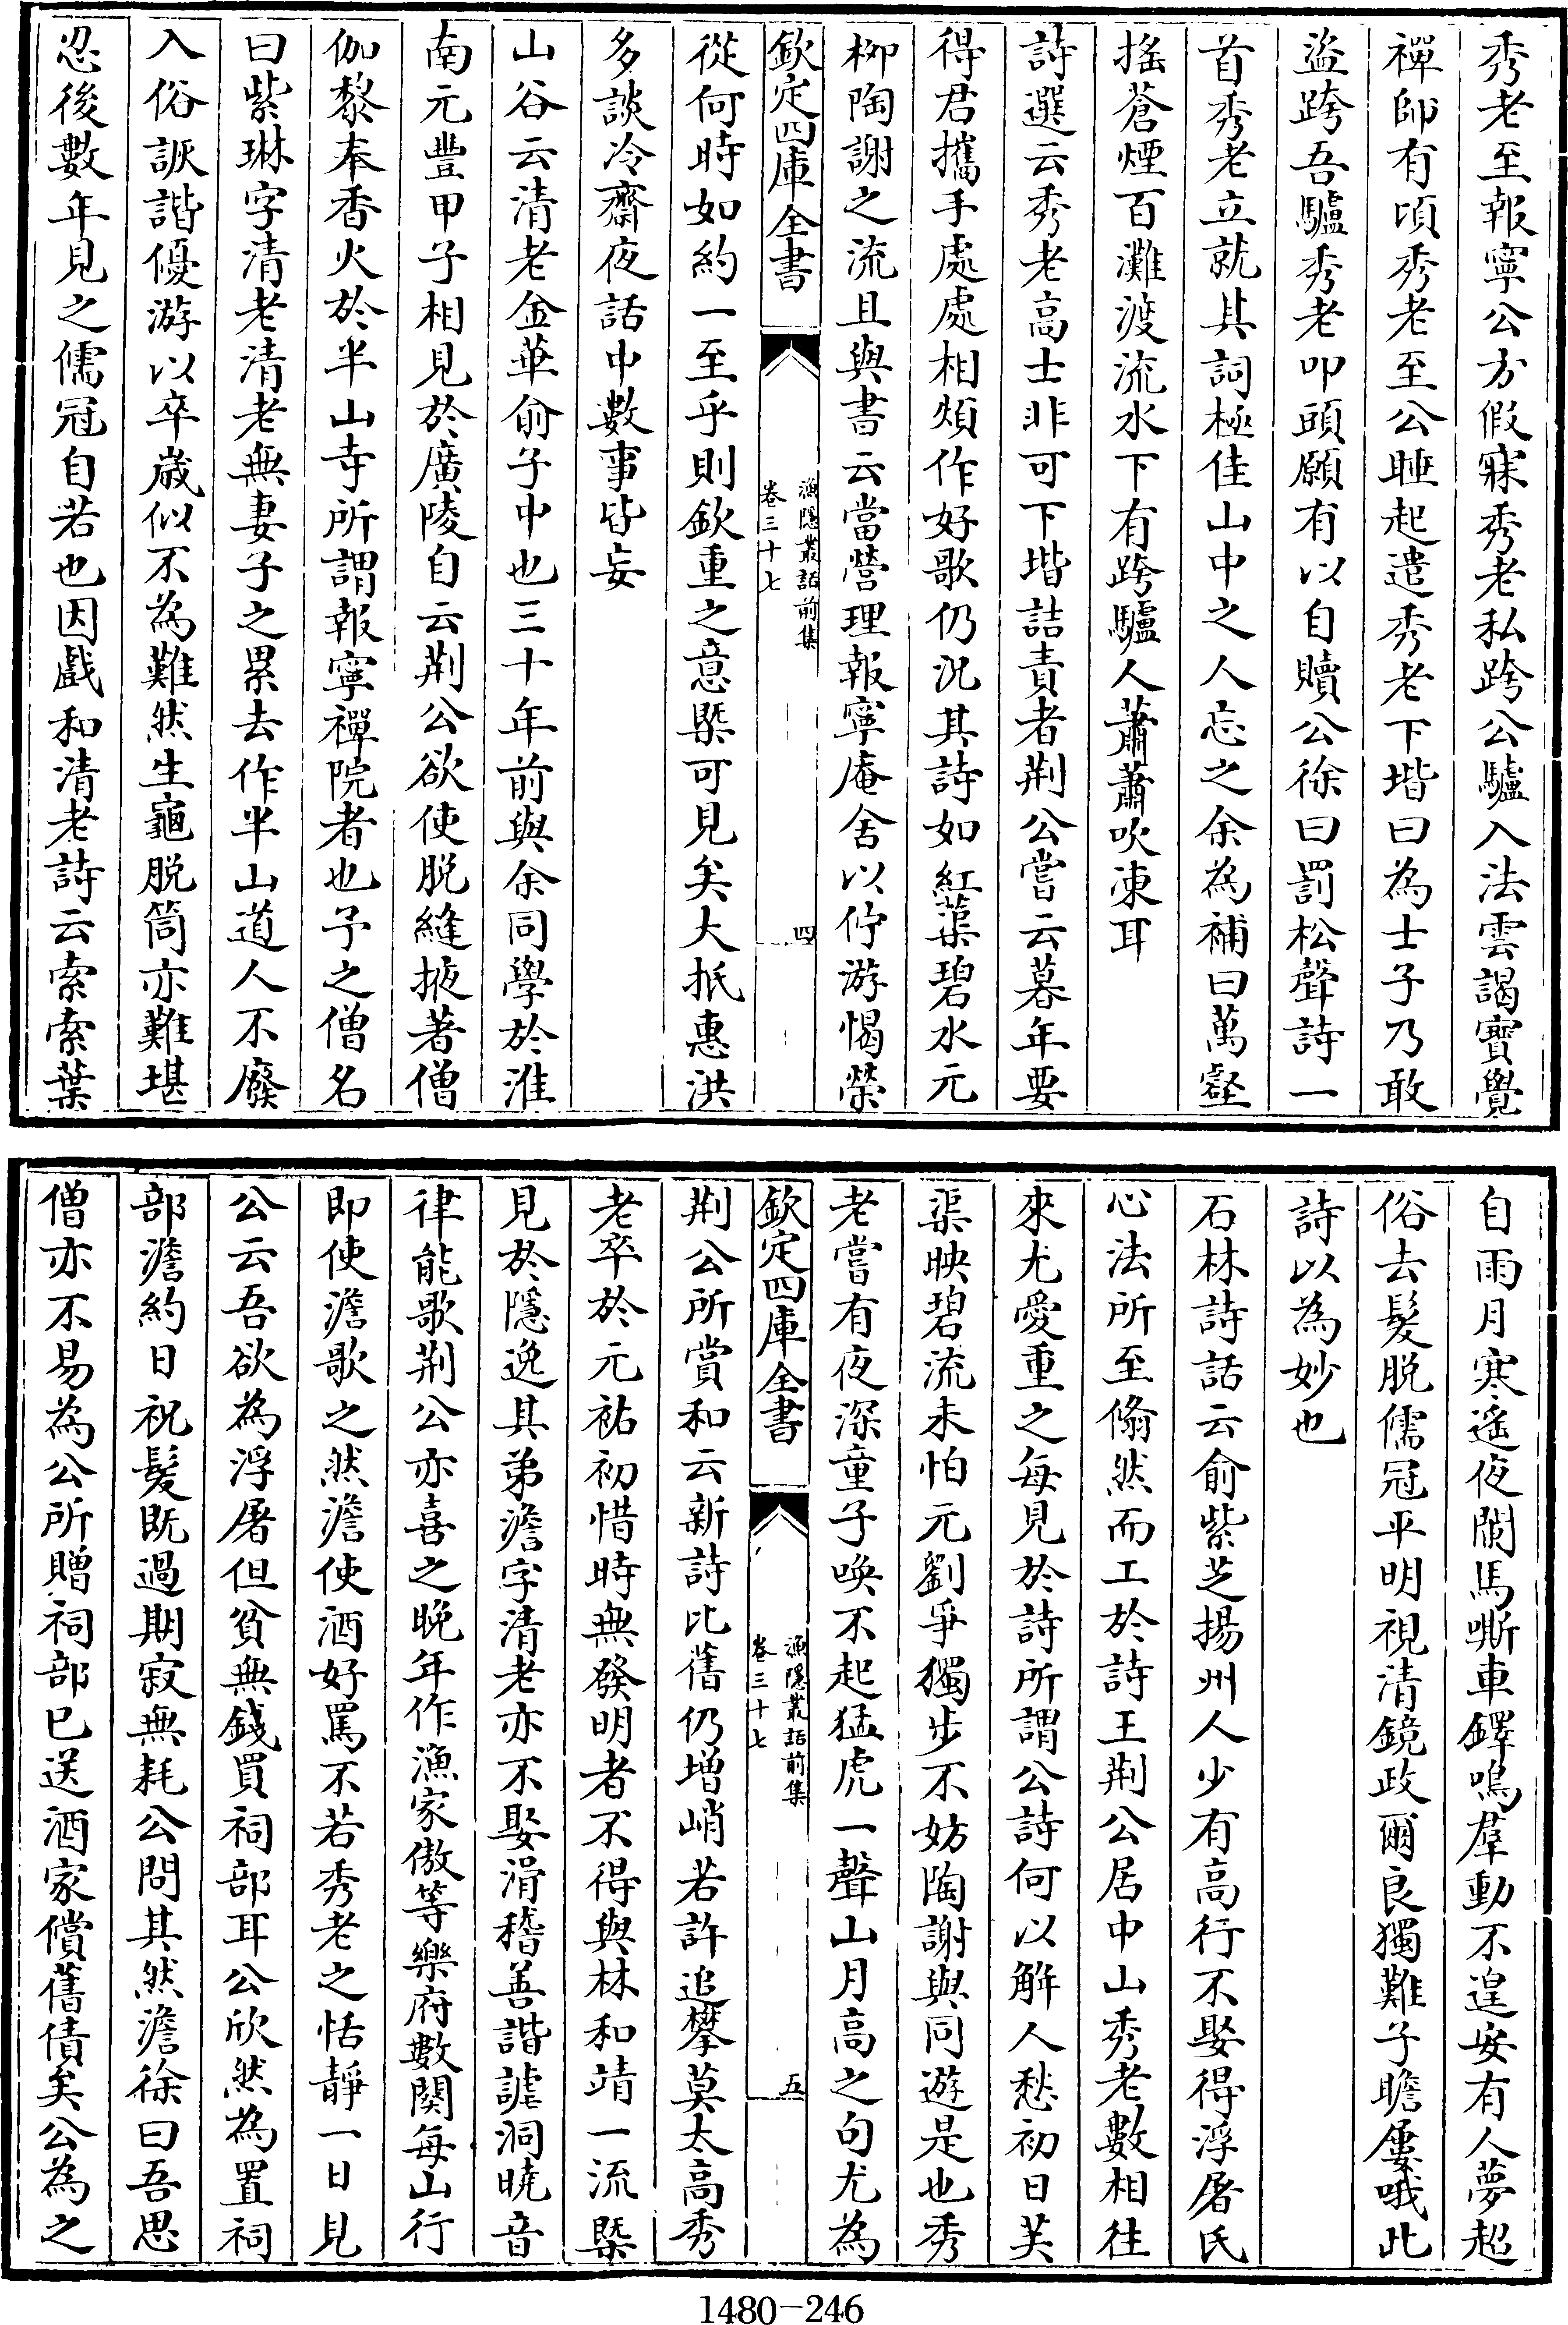 秀老至報寧公方假寐秀老私跨公驢入法雲謁寳覺
禪師有頃秀老至公睡起遣秀老下堦曰為士子乃敢
盜跨吾驢秀老叩頭願有以自贖公徐曰罰松聲詩一
首秀老立就其詞極佳山中之人忘之余為補曰萬壑
搖蒼煙百灘渡流水下有跨驢人蕭蕭吹凍耳
詩選云秀老高士非可下堦詰責者荆公嘗云暮年要
得君攜手處處相煩作好歌仍況其詩如紅蕖碧水元
柳陶謝之流且與書云當營理報寧庵舍以佇游愒榮
欽定四庫全書
漁隱叢話前集
卷三十七
四
從何時如約一至乎則欽重之意槩可見矣大抵惠洪
多談冷齋夜話中數事皆妄
山谷云清老金華俞子中也三十年前與余同學於淮
南元豐甲子相見於廣陵自云荆公欲使脱縫掖著僧
伽黎奉香火於半山寺所謂報寧禪院者也予之僧名
曰紫琳字清老清老無妻子之累去作半山道人不廢
入俗詼諧優游以卒歲似不為難然生龜脱筒亦難堪
忍後數年見之儒冠自若也因戲和清老詩云索索葉
自雨月寒遙夜闌馬嘶車鐸鳴羣動不遑安有人夢超
俗去髮脱儒冠平明視清鏡政爾良獨難子瞻屢哦此
詩以為妙也
石林詩話云俞紫芝揚州人少有高行不娶得浮屠氏
心法所至翛然而工於詩王荆公居中山秀老數相往
來尤愛重之每見於詩所謂公詩何以解人愁初日芙
渠映碧流未怕元劉爭獨步不妨陶謝與同遊是也秀
老嘗有夜深童子喚不起猛虎一聲山月高之句尤為
欽定四庫全書
漁隱叢話前集
卷三十七
五
荆公所賞和云新詩比舊仍增峭若許追攀莫太高秀
老卒於元祐初惜時無發明者不得與林和靖一流槩
見於隱逸其弟澹字清老亦不娶滑稽善諧謔洞曉音
律能歌荆公亦喜之晚年作漁家傲等樂府數闋每山行
即使澹歌之然澹使酒好罵不若秀老之恬靜一日見
公云吾欲為浮屠但貧無錢買祠部耳公欣然為置祠
部澹約日祝髮既過期寂無耗公問其然澹徐曰吾思
僧亦不易為公所贈祠部已送酒家償舊債矣公為之
1480-246